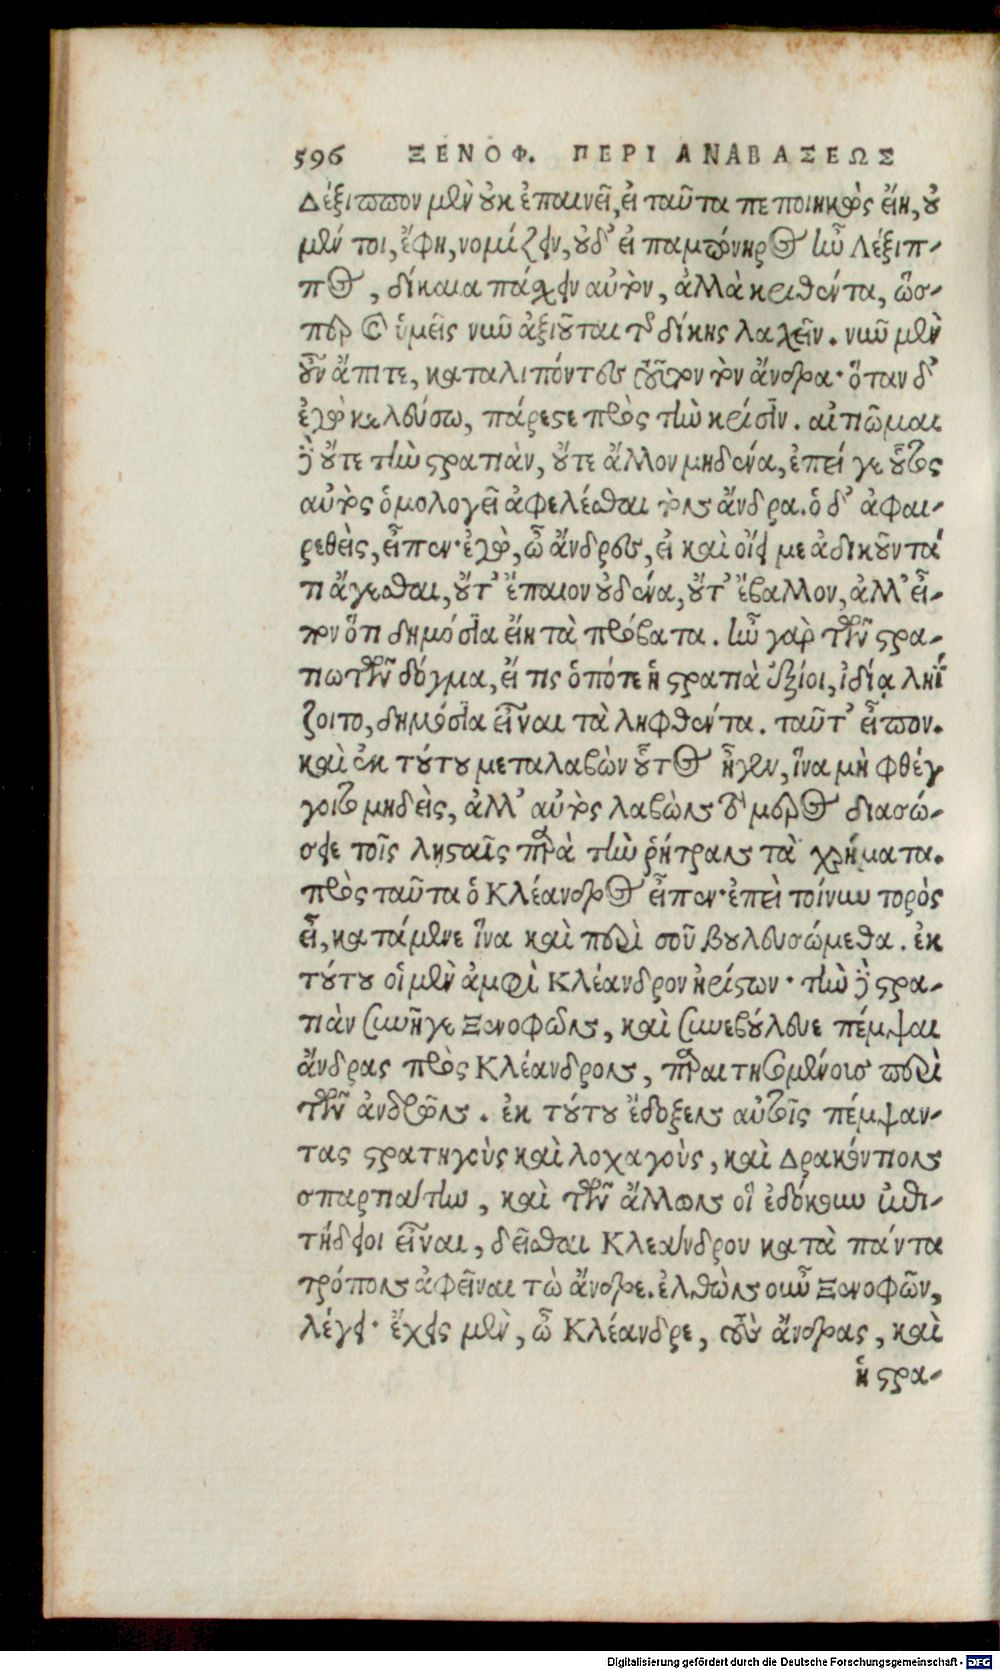 596 ΞΕΝΟΦ. ΠΕΡΙ ΑΝΑΒΑΣΕΩΣ
Δέξιππον μὲν οὐκ ἐπαινεῖ, εἰ ταῦτα πεποιηκὼς εἴη, οὐ
μέν τοι, ἔφη, νομίζειν, οὐδ' εἰ παμπόνηρος ἦν Δέξιπ-
πος, δίκαια πάσχειν αὐτὸν, ἀλλὰ κριθέντα, ὥσ-
περ καὶ ὑμεῖς νῦν ἀξιοῦται τῆς δίκης λαχεῖν. νῦν μὲν
οὖν ἄπιτε, καταλιπόντες τοῦτον τὸν ἄνδρα· ὅταν δ'
ἐγὼ κελεύσω, πάρεστε πρὸς τὴν κρίσιν. αἰτιῶμαι
δὲ οὔτε τὴν στρατιὰν, οὔτε ἄλλον μηδένα, ἐπεί γε οὗτος
αὐτὸς ὁμολογεῖ ἀφελέσθαι τὸν ἄνδρα. ὁ δ' ἀφαι-
ρεθεὶς, εἶπεν· ἐγὼ, ὦ ἄνδρες, εἰ καὶ οἴει με ἀδικοῦντά
τι ἄγεσθαι, οὔτ' ἔπαιον οὐδένα, οὔτ' ἔβαλλον, ἀλλ' εἶ-
πον ὅτι δημόσια εἴη τὰ πρόβατα. ἦν γὰρ τῶν στρα-
τιωτῶν δόγμα, εἴ τις ὁπότε ἡ στρατιὰ ἐξίοι, ἰδίᾳ ληΐ
ζοιτο, δημόσια εἶναι τὰ ληφθέντα. ταῦτ' εἶπον.
καὶ ἐκ τούτου μεταλαβὼν οὗτος ἦγεν, ἵνα μὴ φθέγ
γοιτο μηδεὶς, ἀλλ' αὐτὸς λαβὼν τὸ μέρος διασώ-
σειε τοῖς λῃσταῖς παρὰ τὴν ῥήτραν τὰ χρήματα.
πρὸς ταῦτα ὁ Κλέανδρος εἶπεν· ἐπεὶ τοίνυν τορὸς
εἶ, κατάμενε ἵνα καὶ περὶ σοῦ βουλευσώμεθα. ἐκ
τούτου οἱ μὲν ἀμφὶ Κλέανδρον ἠρίστων· τὴν δὲ στρα-
τιὰν συνῆγε Ξενοφῶν, καὶ συνεβούλευε πέμψαι
ἄνδρας πρὸς Κλέανδρον, παραιτησομένοις περὶ
τῶν ἀνδρῶν. ἐκ τούτου ἔδοξεν αὐτοῖς πέμψαν-
τας στρατηγοὺς καὶ λοχαγοὺς, καὶ Δρακόντιον
σπαρτιάτην, καὶ τῶν ἄλλων οἳ ἐδόκουν ἐπι-
τήδειοι εἶναι, δεῖσθαι Κλεάνδρου κατὰ πάντα
τρόπον ἀφεῖναι τὼ ἄνδρε. ἐλθὼν οὖν Ξενοφῶν,
λέγει· ἔχεις μὲν, ὦ Κλέανδρε, τοὺς ἄνδρας, καὶ
ἡ στρα-
Digitalisierung gefördert durch die Deutsche Forschungsgemeinschaft - DFG